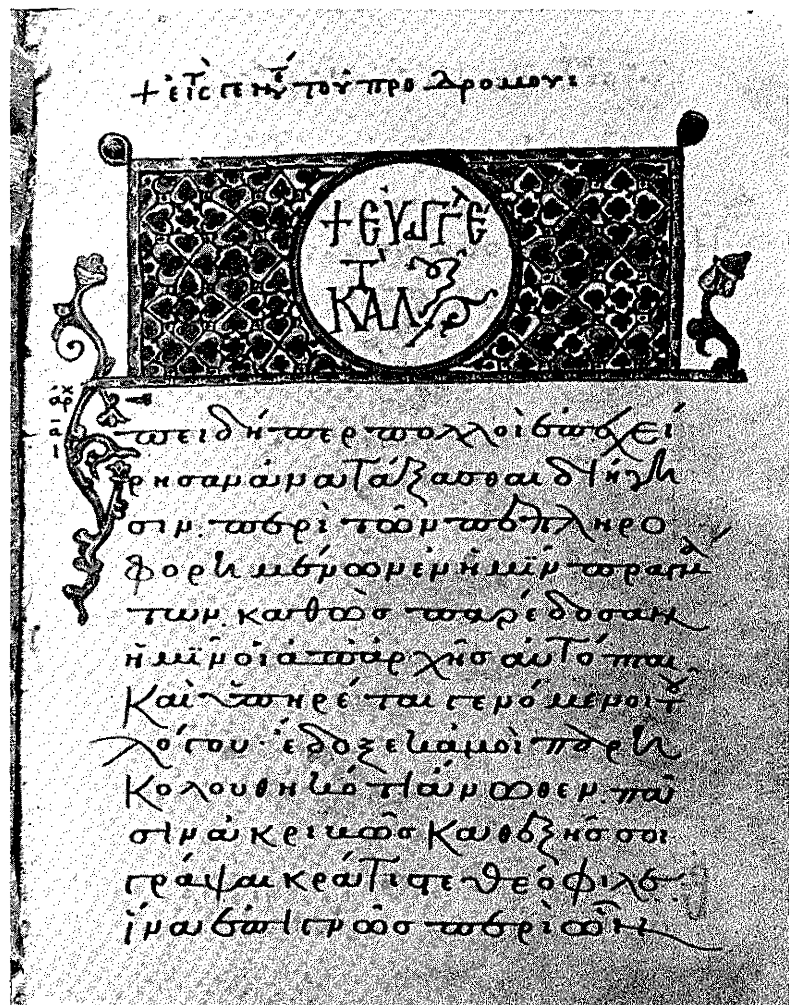 + εἰς τ γενν τοῦ προδρόμου:
+ ΕΥΑΓΓΕ
Κ ΤΑ
ΛΟΥΚΑΝ
ἀρχ
ἐπειδήπερ πολλοὶ ἐπεχεί
ρησαν ἀνατάξασθαι διήγη
σιν. περὶ τῶν πεπληρο
φορημένων ἐν ἡμῖν πραγμα
των. καθὼς παρέδοσαν
ἡμῖν οἱ ἀπ' ἀρχῆς αὐτόπται.
καὶ ὑπηρέται γενόμενοι τοῦ
λόγου· ἔδοξε κἀμοὶ παρη
κολουθηκότι ἄνωθεν. πᾶ
σιν ἀκριβῶς καθεξῆς σοι
γράψαι κράτιστε θεόφιλε
ἵνα ἐπιγνῷς περὶ ὧν